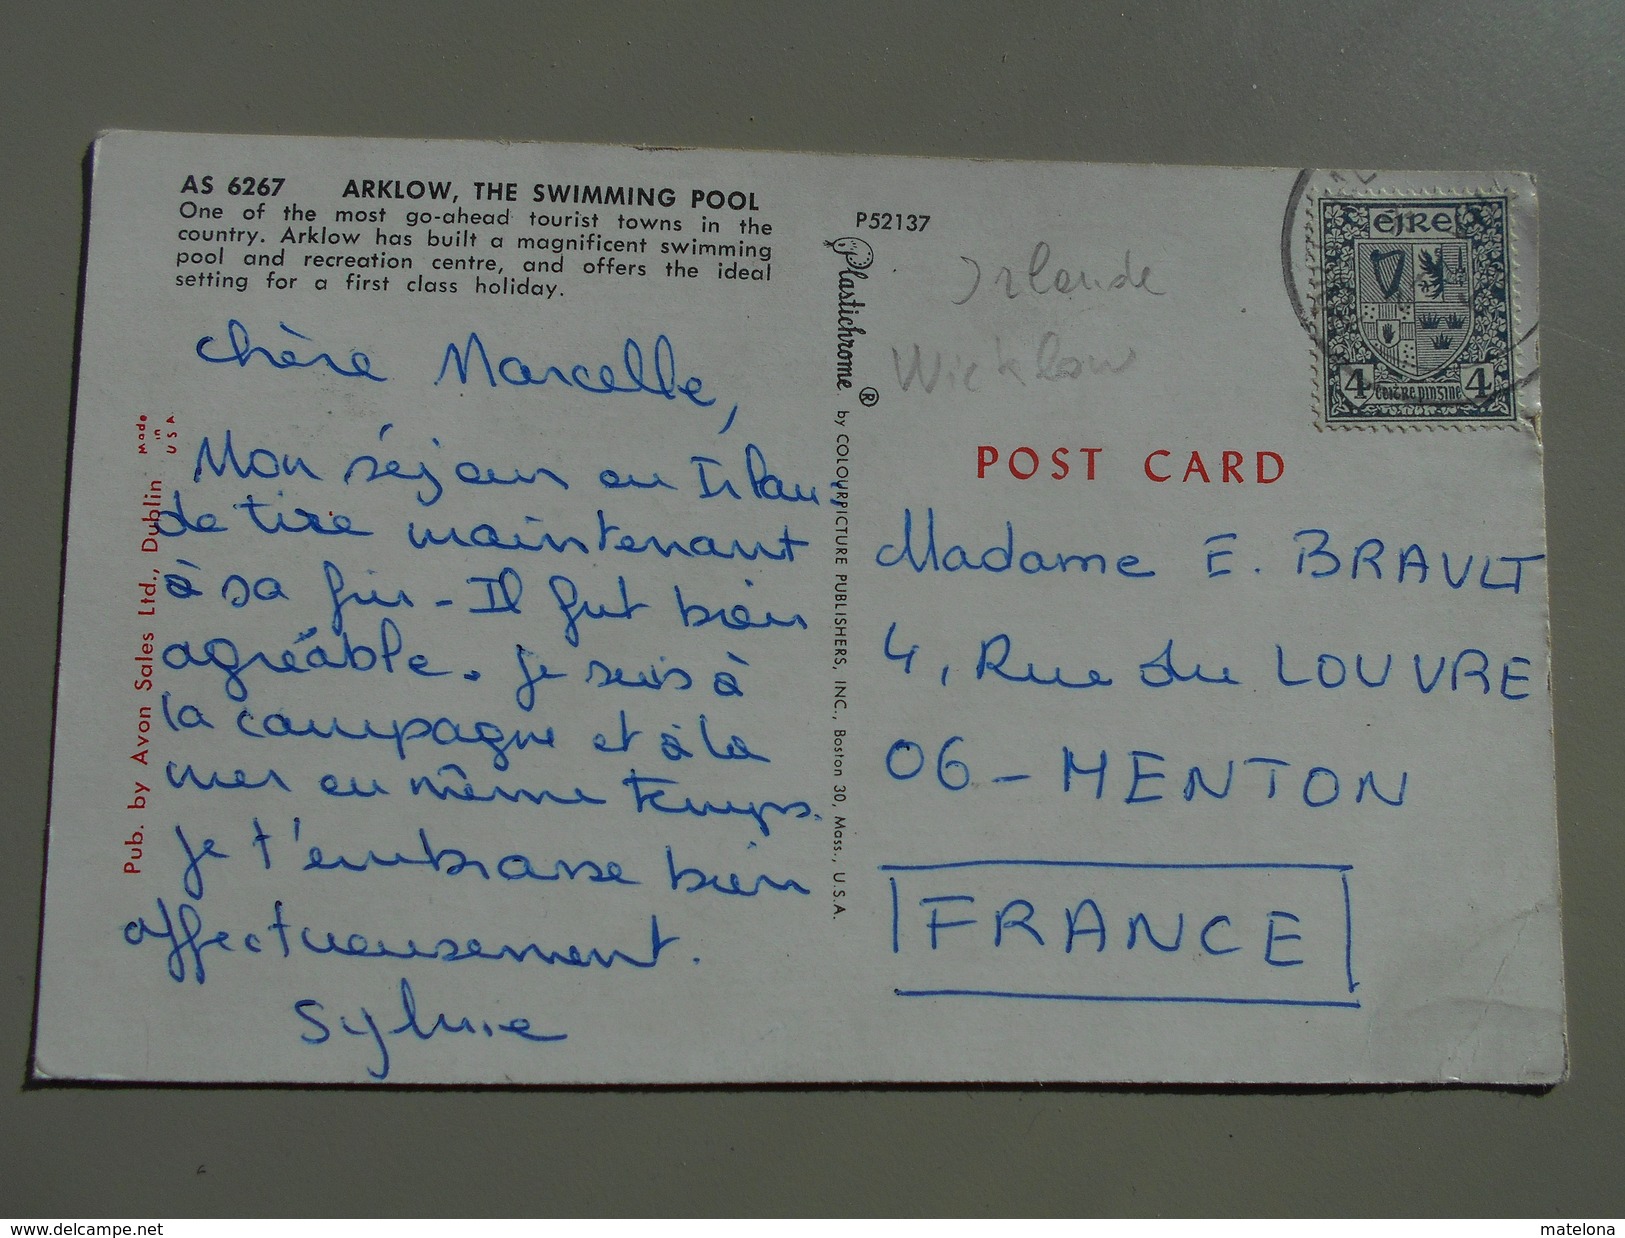 AS 6267 ARKLOW, THE SWIMMING POOL
One of the most go-ahead tourist towns in the
country. Arklow has built a magnificent swimming
pool and recreation centre, and offers the ideal
setting for a first class holiday.
Chère Marcelle,
Mon séjour en Irlan-
de tire maintenant
à sa fin - Il fut bien
agréable. Je suis à
la campagne et à la
mer en même temps.
Je t'embrasse bien
affectueusement.
Sylvie
Pub. by Avon Sales Ltd., Dublin
Made
in
USA
P52137
Plastichrome ® by COLOURPICTURE PUBLISHERS, INC., Boston 30, Mass., U.S.A.
Irlande
Wicklow
POST CARD
éIRe
4 ceitre pingine 4
Madame E. BRAULT
4, Rue du LOUVRE
06 - MENTON
FRANCE
www.delcampe.net
matelona